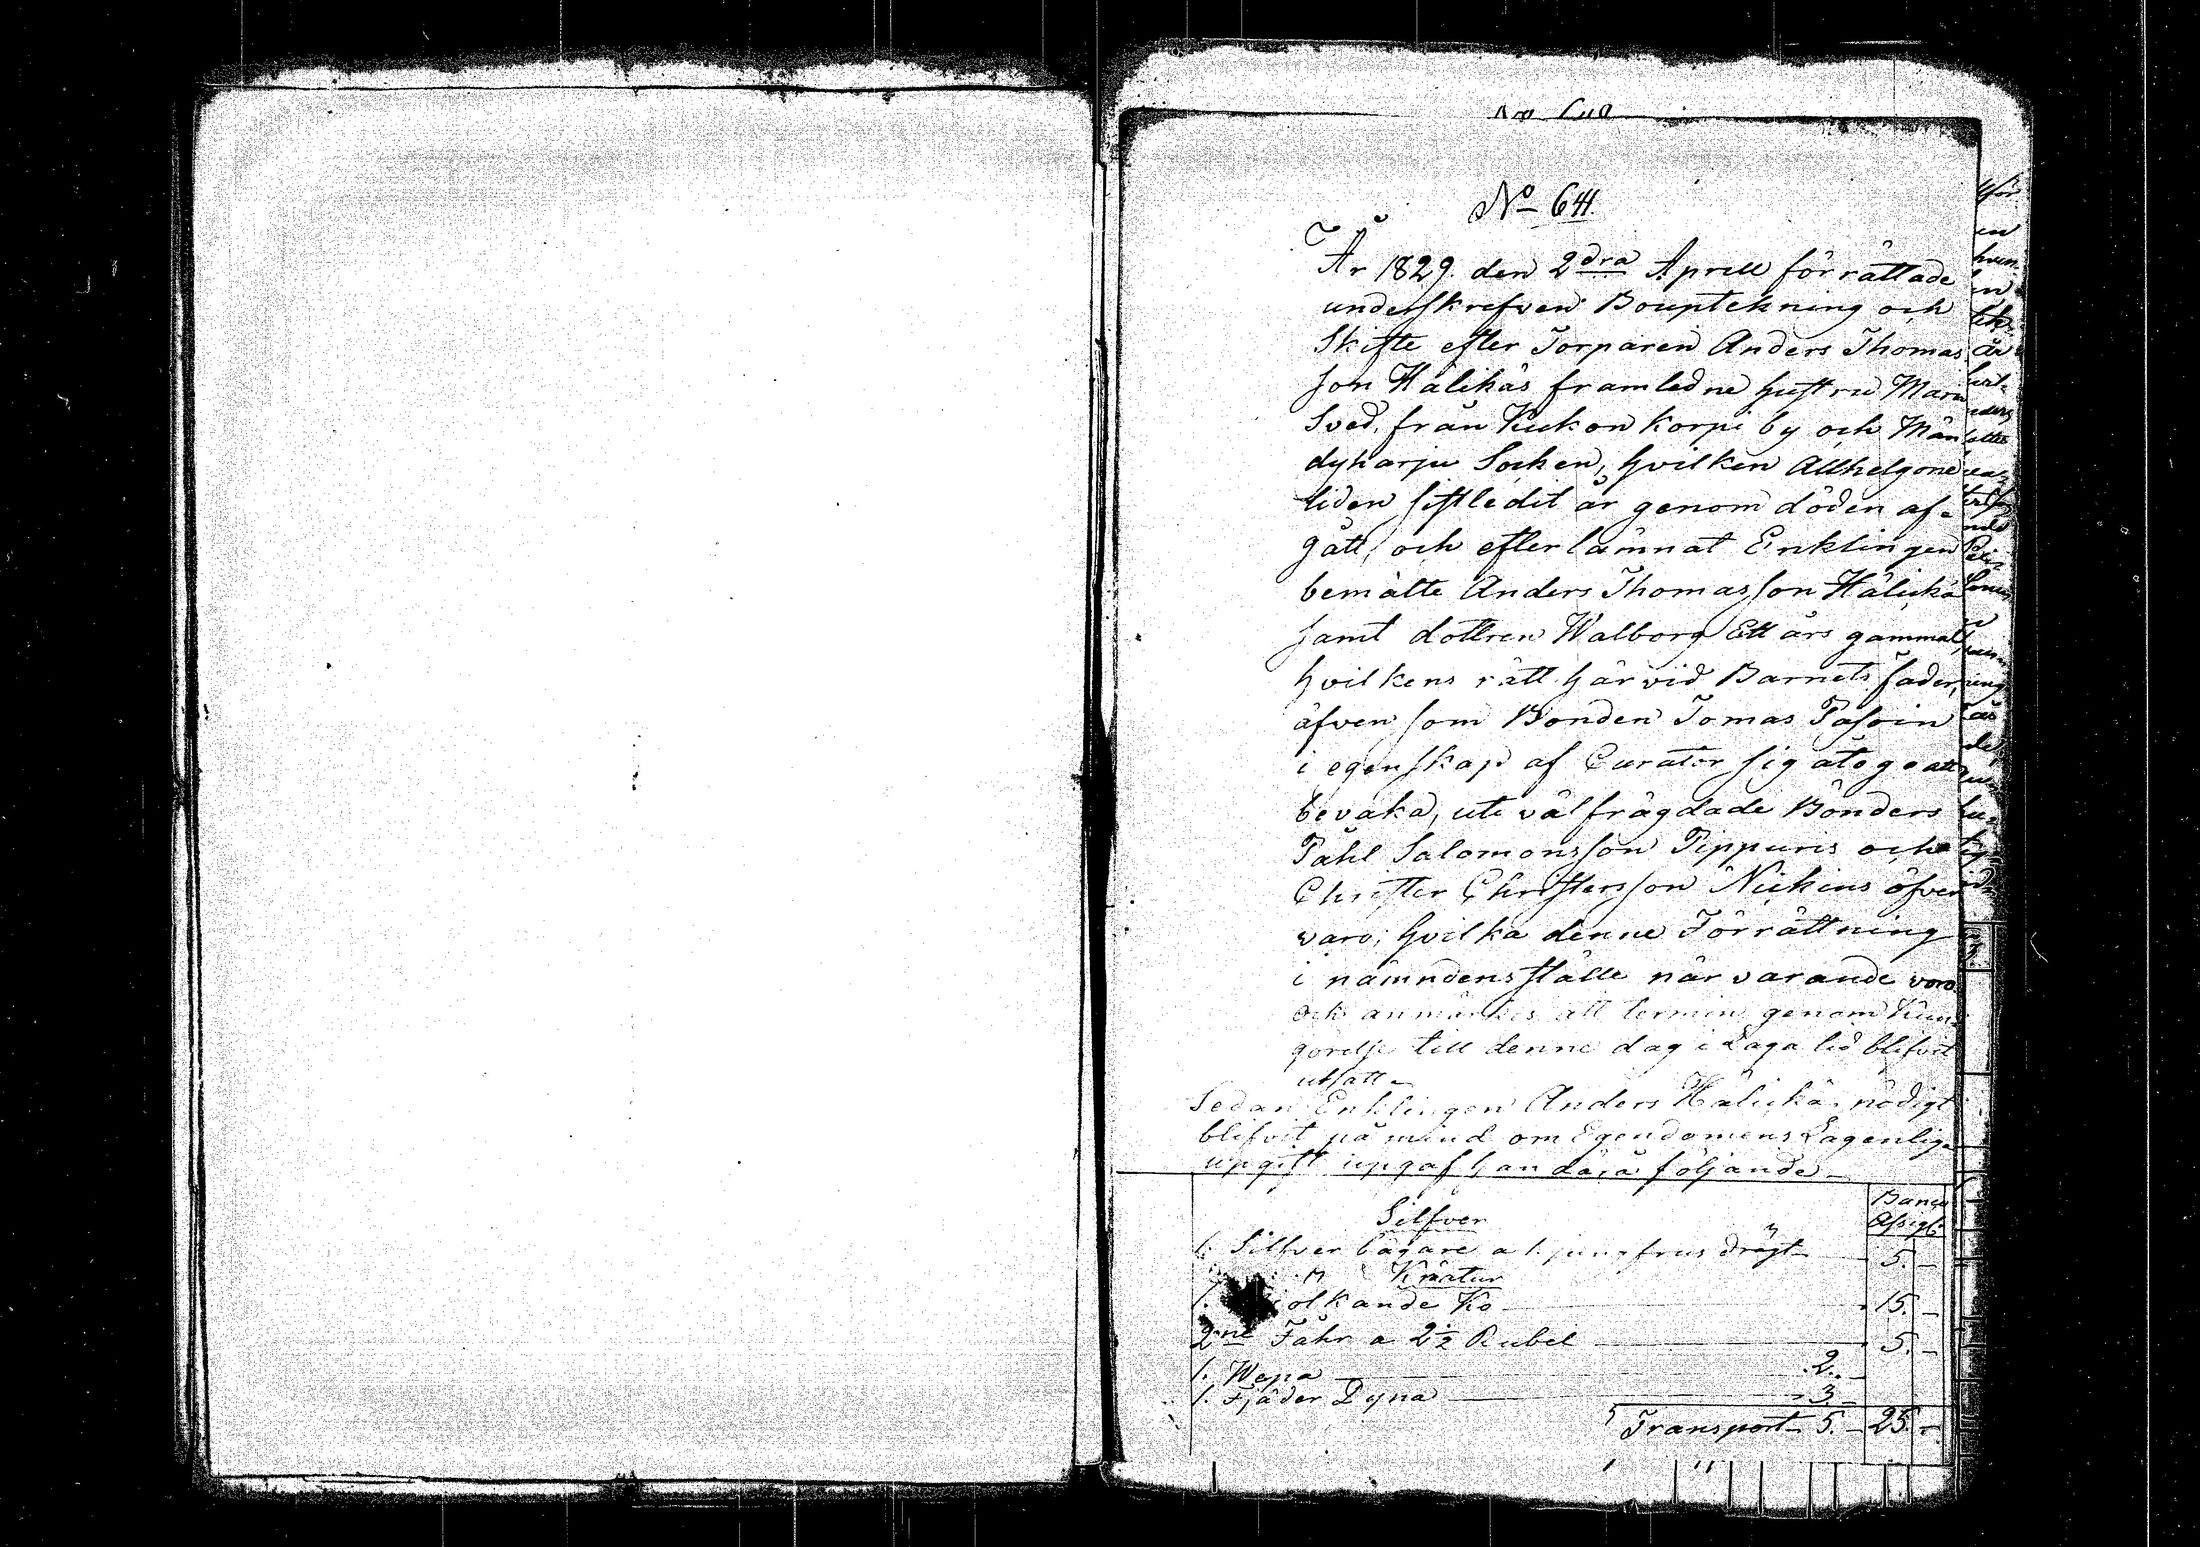 No 641
År 1829. den 2dra Aprill förrättade
underskrefven Bouptekning och
Skifte efter Torparen Anders Thomas
son Hälikäs framledne hustru Maria
Sved, från Kuckonkorpi by och Män
dyharju Socken, hvilken Allhelgone
tiden sistledit år genom döden af-
gått, och efterlämnat Enklingen
bemälte Anders Thomasson Hälickä
samt dottren Walborg Ett års gammal,
hvilkens rätt härvid Barnets fader,
äfven som Bonden Tomas Pasoin
i egenskap af Curator sig åtog att
bevaka, uti välfrägdade Bönders
Påhl Salomonsson Pippuris och
Christer Christersson Nickins öfver
varo, hvilka denne Förrättning
i nämndens ställe närvarande voro
och anmärkes att termin genom Kun
görelse till denne dag i Laga tid blifvit
utsatt.
Sedan Enklingen Anders Hälickä nödigt
blifvit påmind om Egendomens Lagenlige
upgift upgaf han därå följande
Banco
Assigt.
Silfver
1. Silfver bägare a 1. jungfrus drägt 5. -
Kreatur
1. jolkande Ko 15. -
2ne Fåhr a 2½ Rubel 5. -
1. Wepa 2. -
1. Fjäder Dyna 3 -
Transport 5. - 25. -